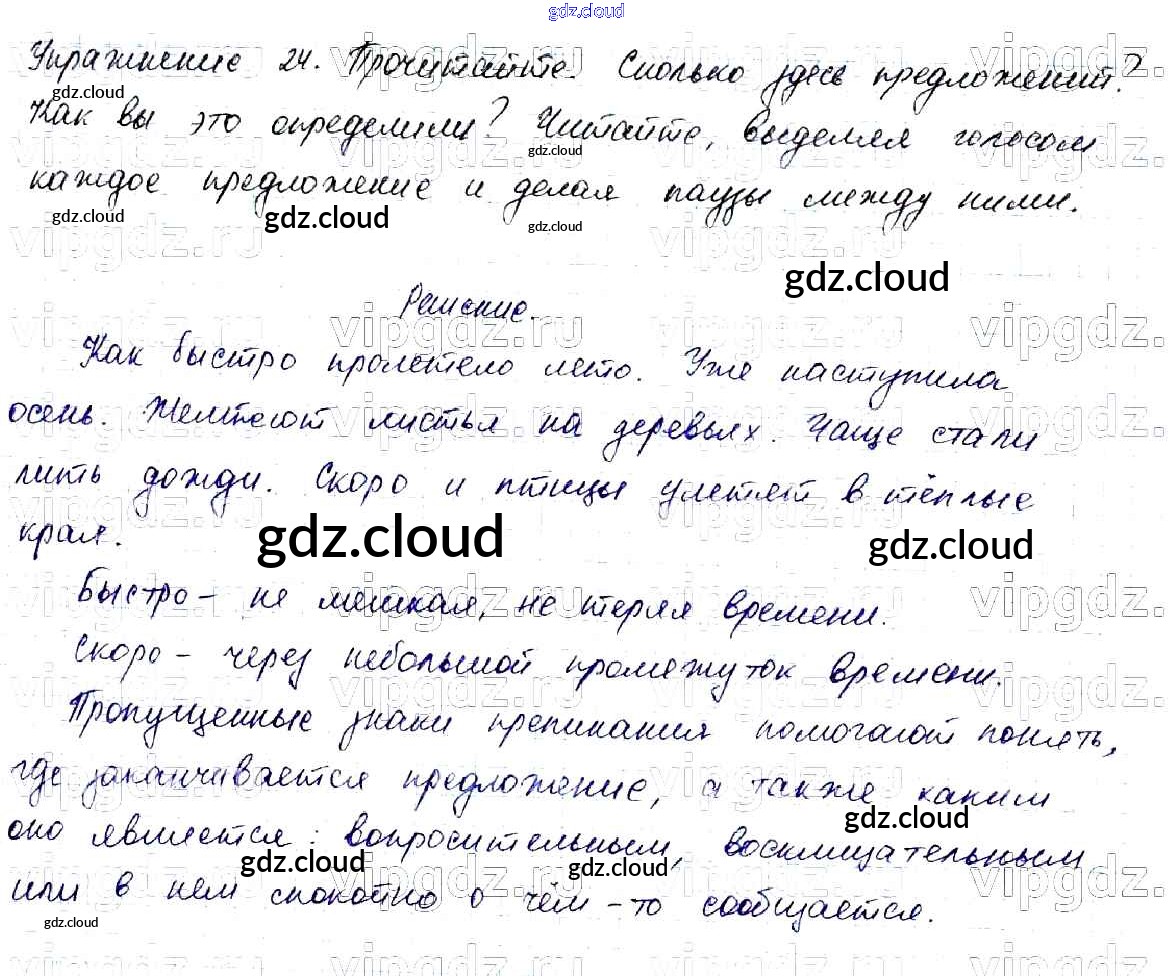 gdz.cloud
Упражнение 24. Прочитайте. Сколько здесь предложений?
Как вы это определили? Читайте, выделяя голосом
каждое предложение и делая паузы между ними.
Решение.
Как быстро пролетело лето. Уже наступила
осень. Желтеют листья на деревьях. Чаще стали
лить дожди. Скоро и птицы улетят в тёплые
края.
Быстро – не мешкая, не теряя времени.
Скоро – через небольшой промежуток времени.
Пропущенные знаки препинания помогают понять,
где заканчивается предложение, а также каким
оно является: вопросительным, восклицательным
или в нем спокойно о чём-то сообщается.